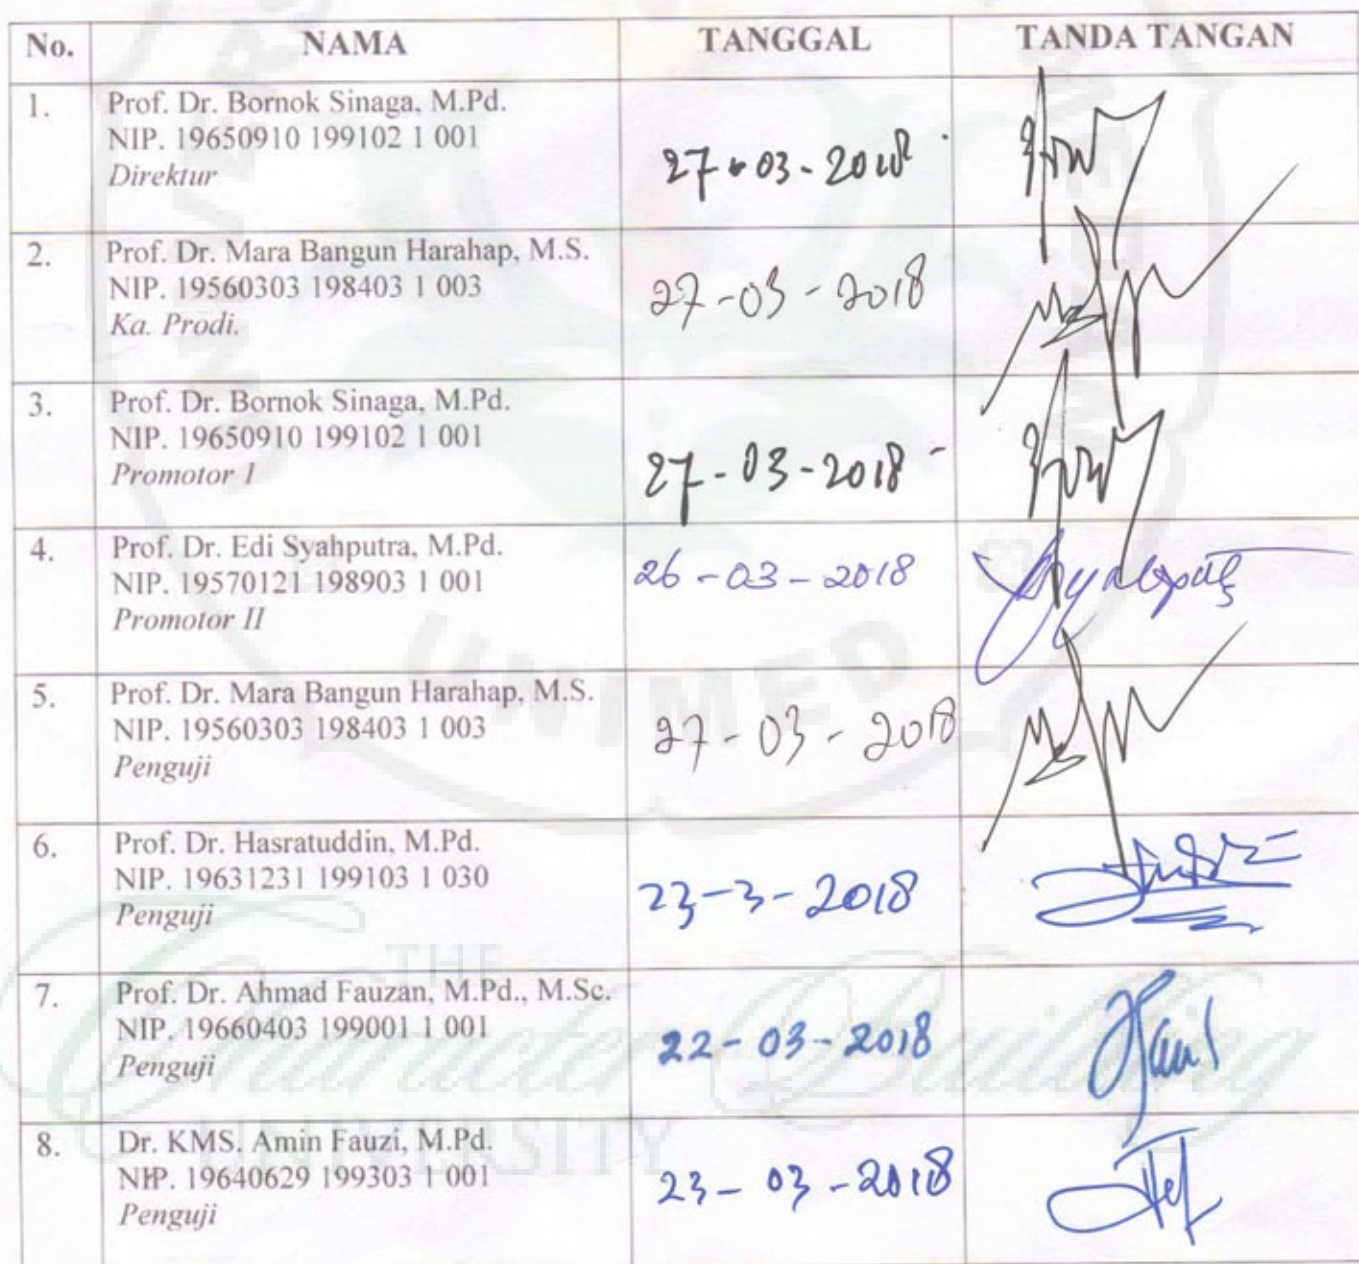 No. NAMA TANGGAL TANDA TANGAN
1. Prof. Dr. Bornok Sinaga, M.Pd.
NIP. 19650910 199102 1 001
Direktur
27-03-2018
2. Prof. Dr. Mara Bangun Harahap, M.S.
NIP. 19560303 198403 1 003
Ka. Prodi.
27-03-2018
3. Prof. Dr. Bornok Sinaga, M.Pd.
NIP. 19650910 199102 1 001
Promotor I
27-03-2018
4. Prof. Dr. Edi Syahputra, M.Pd.
NIP. 19570121 198903 1 001
Promotor II
26-03-2018
5. Prof. Dr. Mara Bangun Harahap, M.S.
NIP. 19560303 198403 1 003
Penguji
27-03-2018
6. Prof. Dr. Hasratuddin, M.Pd.
NIP. 19631231 199103 1 030
Penguji
23-3-2018
7. Prof. Dr. Ahmad Fauzan, M.Pd., M.Sc.
NIP. 19660403 199001 1 001
Penguji
22-03-2018
8. Dr. KMS. Amin Fauzi, M.Pd.
NIP. 19640629 199303 1 001
Penguji
23-03-2018
UNIMED
THE
Character Building
UNIVERSITY